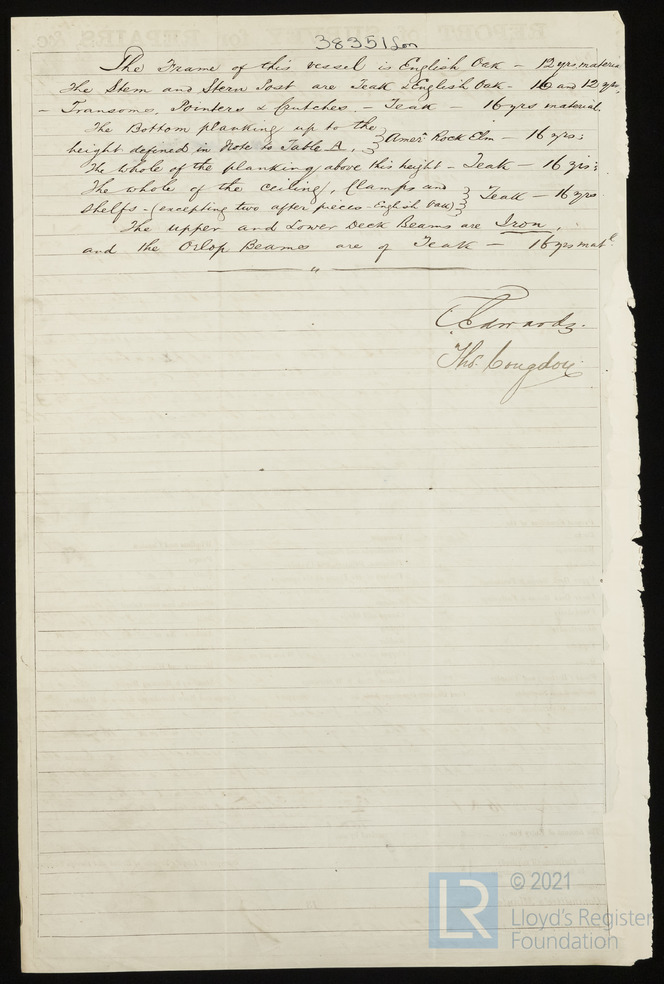 38351 Lon
The Frame of this vessel is English Oak - 12 yrs material
The Stem and Stern Post are Teak & English Oak - 16 and 12 yrs.
- Transoms, Pointers & Crutches. - Teak - 16 yrs material.
The Bottom planking up to the
height defined in Note to Table A, } Amern Rock Elm - 16 yrs;
The whole of the planking above this height - Teak - 16 yrs;
The whole of the ceiling, Clamps and
Shelfs - (excepting two after pieces - English Oak) } Teak - 16 yrs
The upper and Lower Deck Beams are Iron,
and the Orlop Beams are of Teak - 16 yrs matl
"
C. Edwards.
Thos. Congdon
© 2021
LR
Lloyd's Register
Foundation